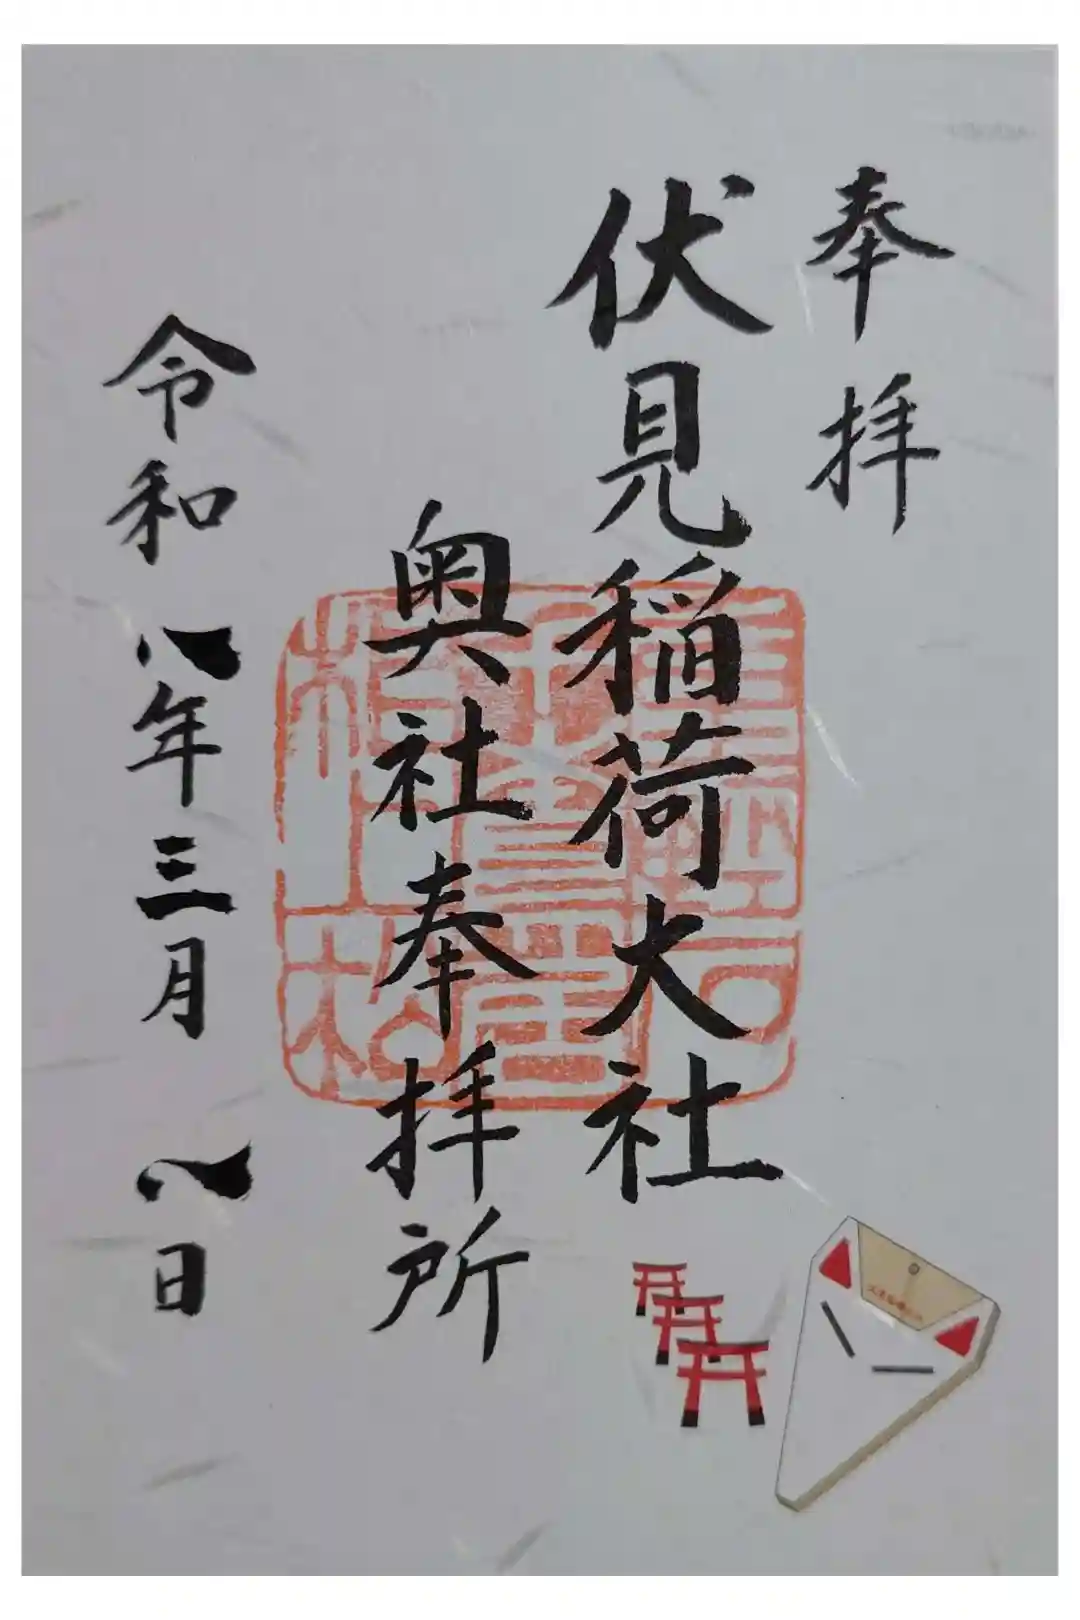 奉拝
伏見稲荷大社
奥社奉拝所
令和八年三月八日